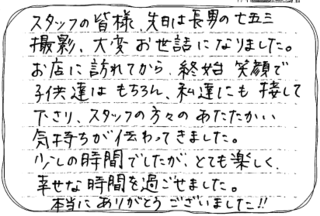 スタッフの皆様、先日は長男の七五三
撮影、大変お世話になりました。
お店に訪れてから、終始笑顔で
子供達はもちろん、私達にも接して
下さり、スタッフの方々のあたたかい
気持ちが伝わってきました。
少しの時間でしたが、とても楽しく、
幸せな時間を過ごせました。
本当にありがとうございました!!